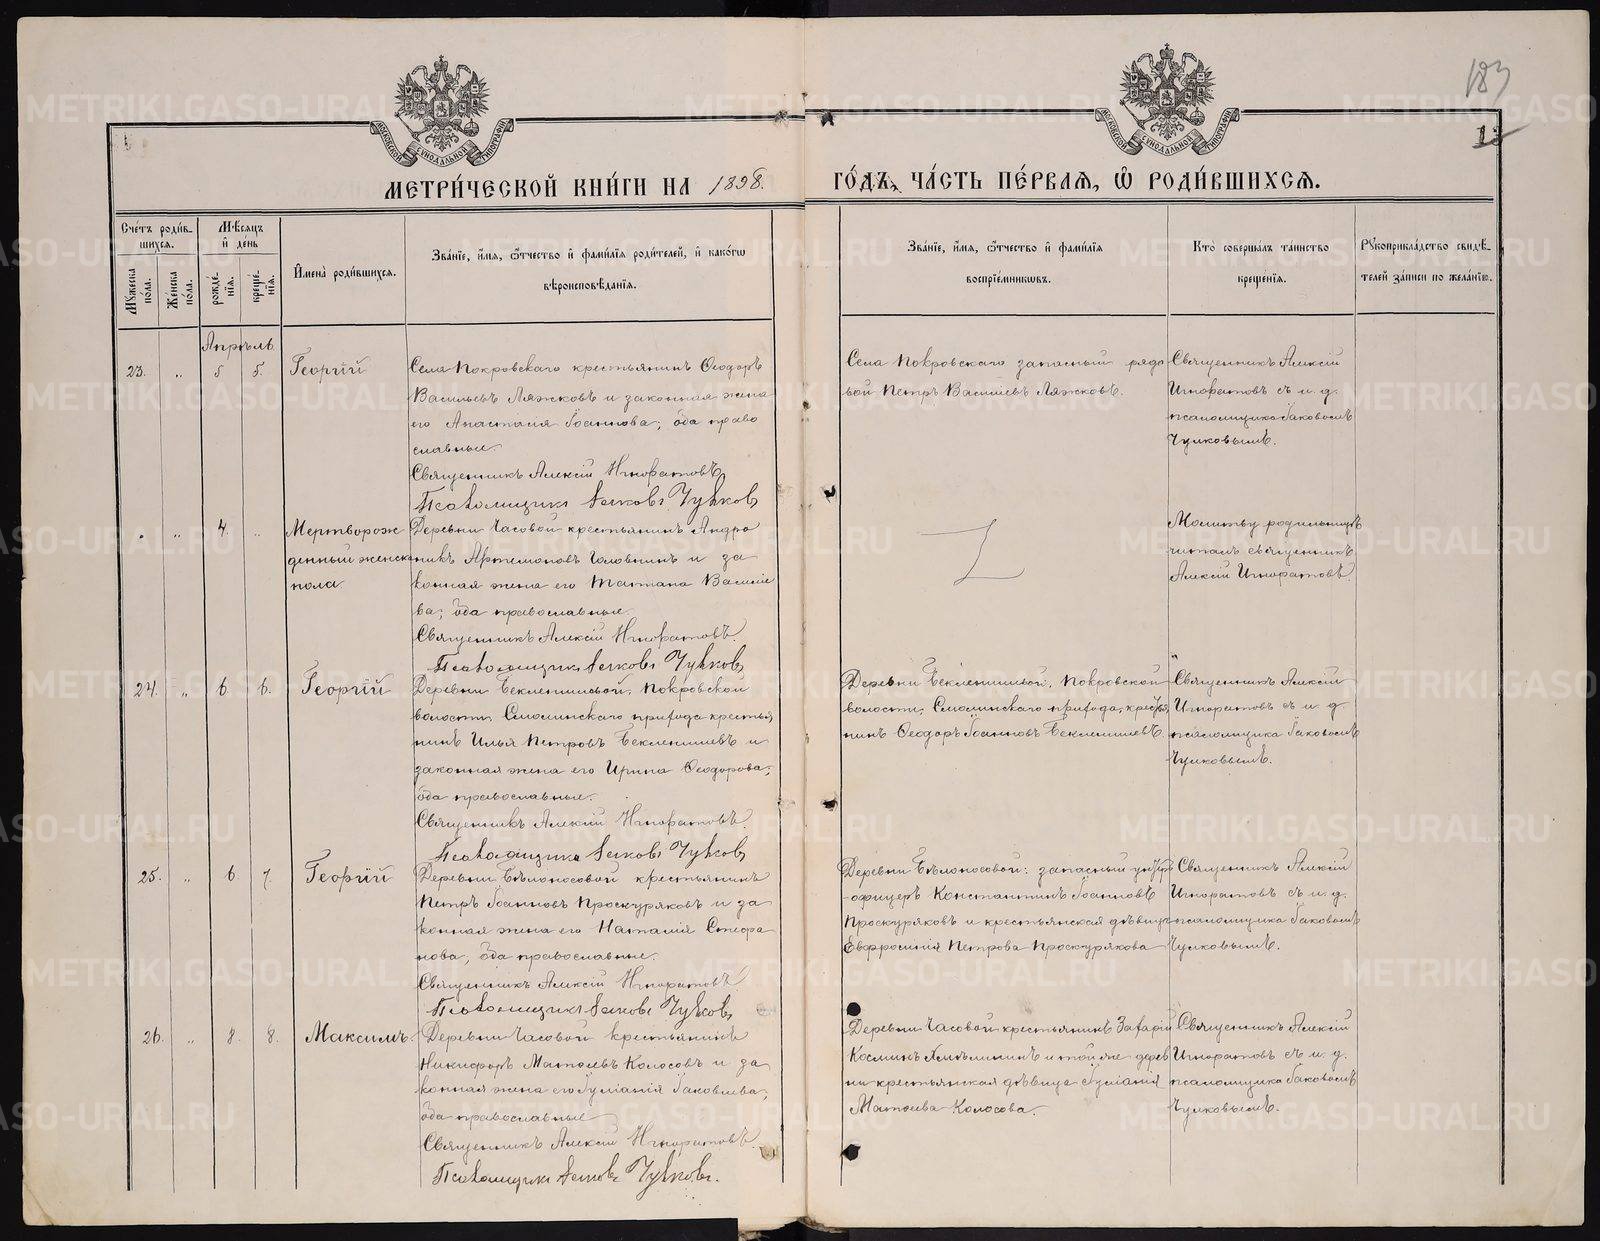 183
13
МЕТРИ́ЧЕСКОЙ КНИ́ГИ НА 1898.
ГО́ДЪ, ЧА́СТЬ ПЕ́РВАЯ, Ѡ РОДИ́ВШИХСЯ.
МОСКОВСКОЙ СУНОДАЛЬНОЙ ТИПОГРАФІИ
МОСКОВСКОЙ СУНОДАЛЬНОЙ ТИПОГРАФІИ
Сче́тъ роди́в-
шихся.
Мѣ́сяцъ
и́ де́нь
Мꙋ́жеска
по́ла.
Же́нска
по́ла.
рожде́-
нїя.
креще́-
нїя.
И҆мена̀ роди́вшихся.
Зва́нїе, и҆́мя, ѻ҆́тчество и҆ фами́лїя роди́телей, и҆ како́гѡ
вѣроисповѣ́данїя.
Зва́нїе, и҆́мя, ѻ҆́тчество и҆ фами́лїя
воспрїе́мникѡвъ.
Кто̀ соверша́лъ та́инство
креще́нїя.
Рꙋкоприкла́дство свидѣ́-
телей за́писи по жела́нїю.
Апрѣль
23. „ 5 5. Георгій
Села Покровскаго крестьянинъ Ѳеодоръ
Васильевъ Ляжковъ и законная жена
его Анастасія Іоаннова; оба право
славные.
Священникъ Алексій Игноратовъ
Псаломщикъ Іаковъ Чулковъ
Села Покровскаго запасный рядо
вой Петръ Василіевъ Ляжковъ.
Священникъ Алексій
Игноратовъ съ и. д.
псаломщика Іаковомъ
Чулковымъ.
„ 4. „ Мертворож
денный женск
пола.
Деревни Часовой крестьянинъ Андро
никъ Артемоновъ Головнинъ и за
конная жена его Татіана Василіе
ва; оба православные.
Священникъ Алексій Игноратовъ.
Псаломщикъ Іаковъ Чулковъ
Молитву родильницѣ
читалъ священникъ
Алексій Игноратовъ
24. „ 6. 6. Георгій
Деревни Бекленишевой, Покровской
волости, Смолинскаго прихода крестья
нинъ Илья Петровъ Бекленишевъ и
законная жена его Ирина Ѳеодорова;
оба православные.
Священникъ Алексій Игноратовъ.
Псаломщикъ Іаковъ Чулковъ
Деревни Бекленишевой, Покровской
волости, Смолинскаго прихода, крестья
нинъ Ѳеодоръ Іоанновъ Бекленишевъ.
Священникъ Алексій
Игноратовъ съ и. д
псаломщика Іаковомъ
Чулковымъ.
25. „ 6. 7. Георгій
Деревни Бѣлоносовой крестьянинъ
Петръ Іоанновъ Проскуряковъ и за
конная жена его Наталія Стефа
нова, оба православные.
Священникъ Алексій Игноратовъ.
Псаломщикъ Іаковъ Чулковъ
Деревни Бѣлоносовой: запасный унтеръ
-офицеръ Константинъ Іоанновъ
Проскуряковъ и крестьянская дѣвица
Евфросинія Петрова Проскурякова
Священникъ Алексій
Игноратовъ съ и. д.
псаломщика Іаковомъ
Чулковымъ.
26. „ 8. 8. Максимъ.
Деревни Часовой крестьянинъ
Никифоръ Матѳевъ Колосовъ и за
конная жена его Іуліанія Іаковлева;
оба православные
Священникъ Алексій Игноратовъ.
Псаломщикъ Іаковъ Чулковъ.
Деревни Часовой крестьянинъ Захарій
Космин и той же дерев
ни крестьянская дѣвица Іуліанія
Матѳіева Колосова.
Священникъ Алексій
Игноратовъ съ и. д.
псаломщика Іаковомъ
Чулковымъ.
METRIKI.GASO-URAL.RU